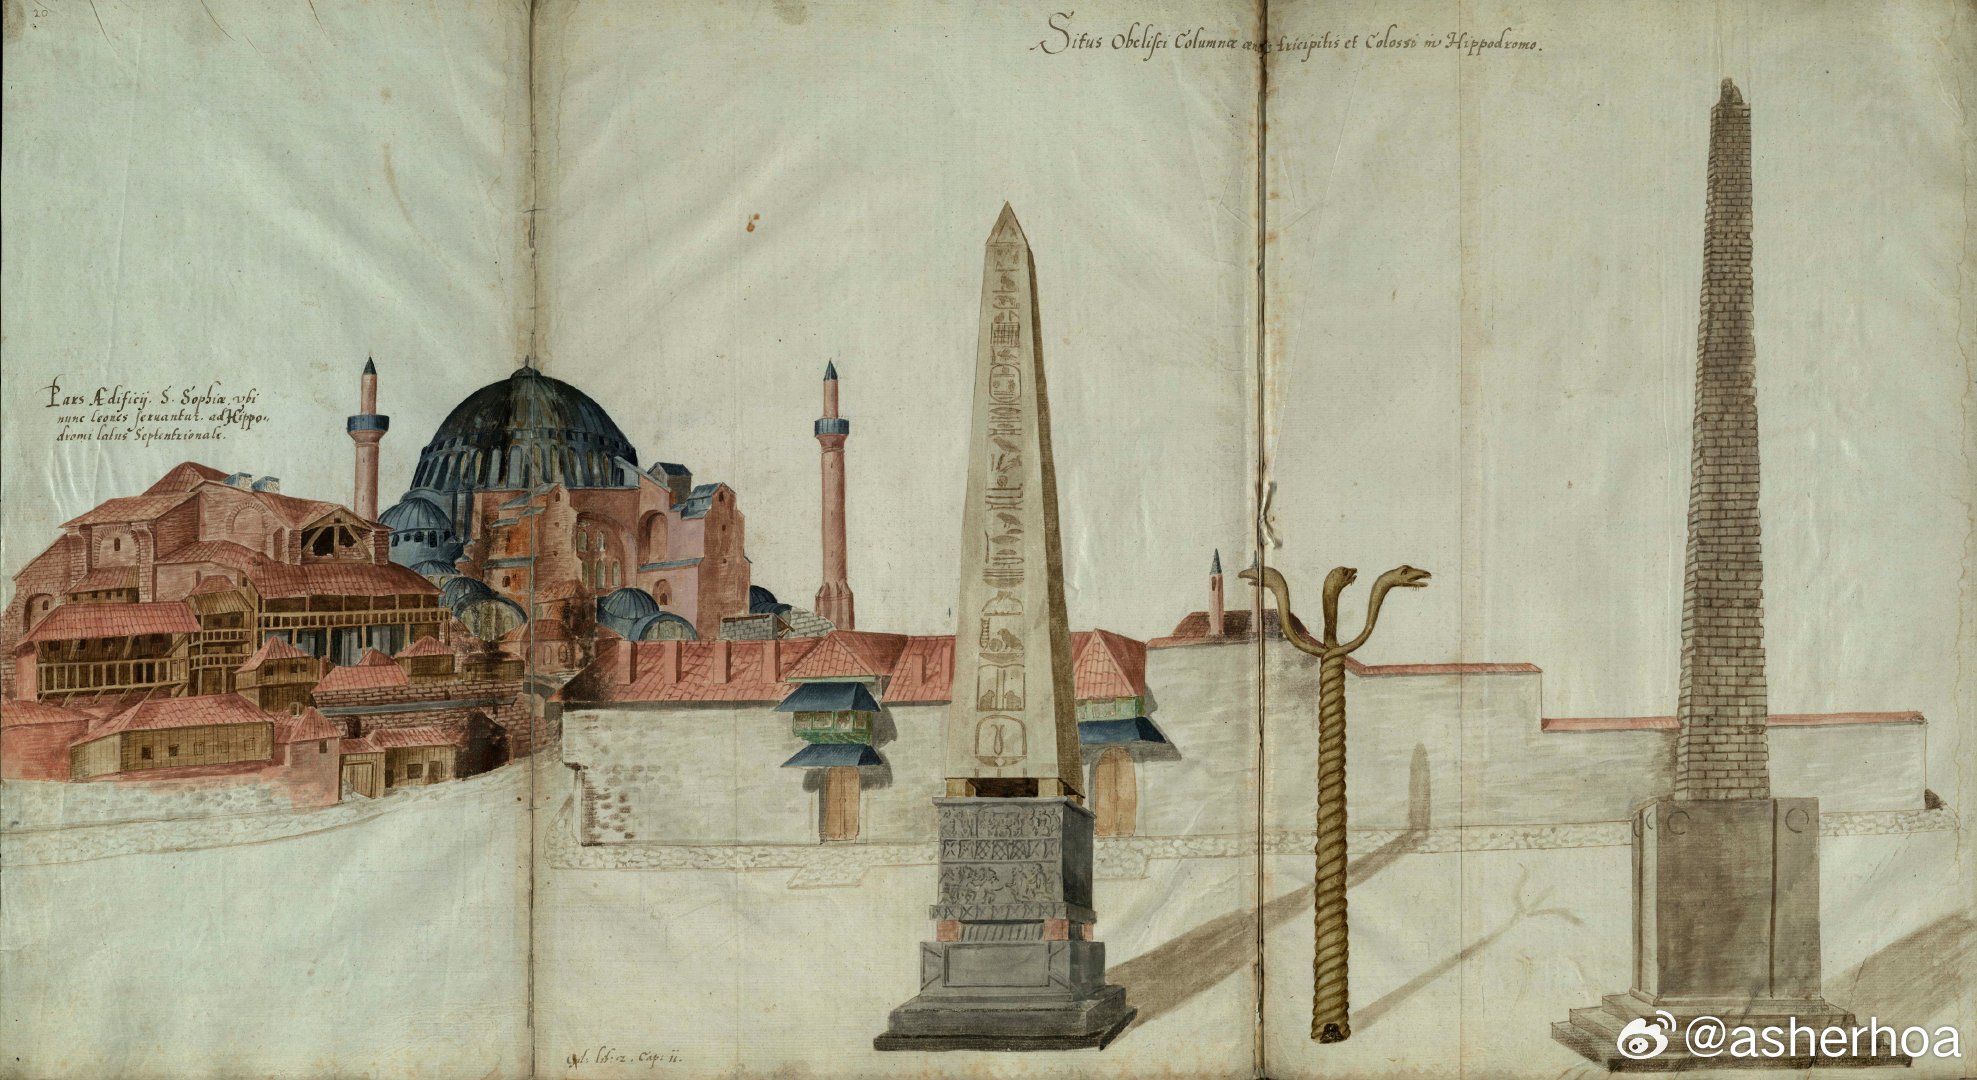 20
Situs Obelisci Columnæ tricipitis et Colossi in Hippodromo.
Pars Ædificij. S. Sophiæ, vbi
nunc leones seruantur. ad Hippo-
dromi latus Septentrionale.
lib: 2. Cap: ii.
@asherhoa